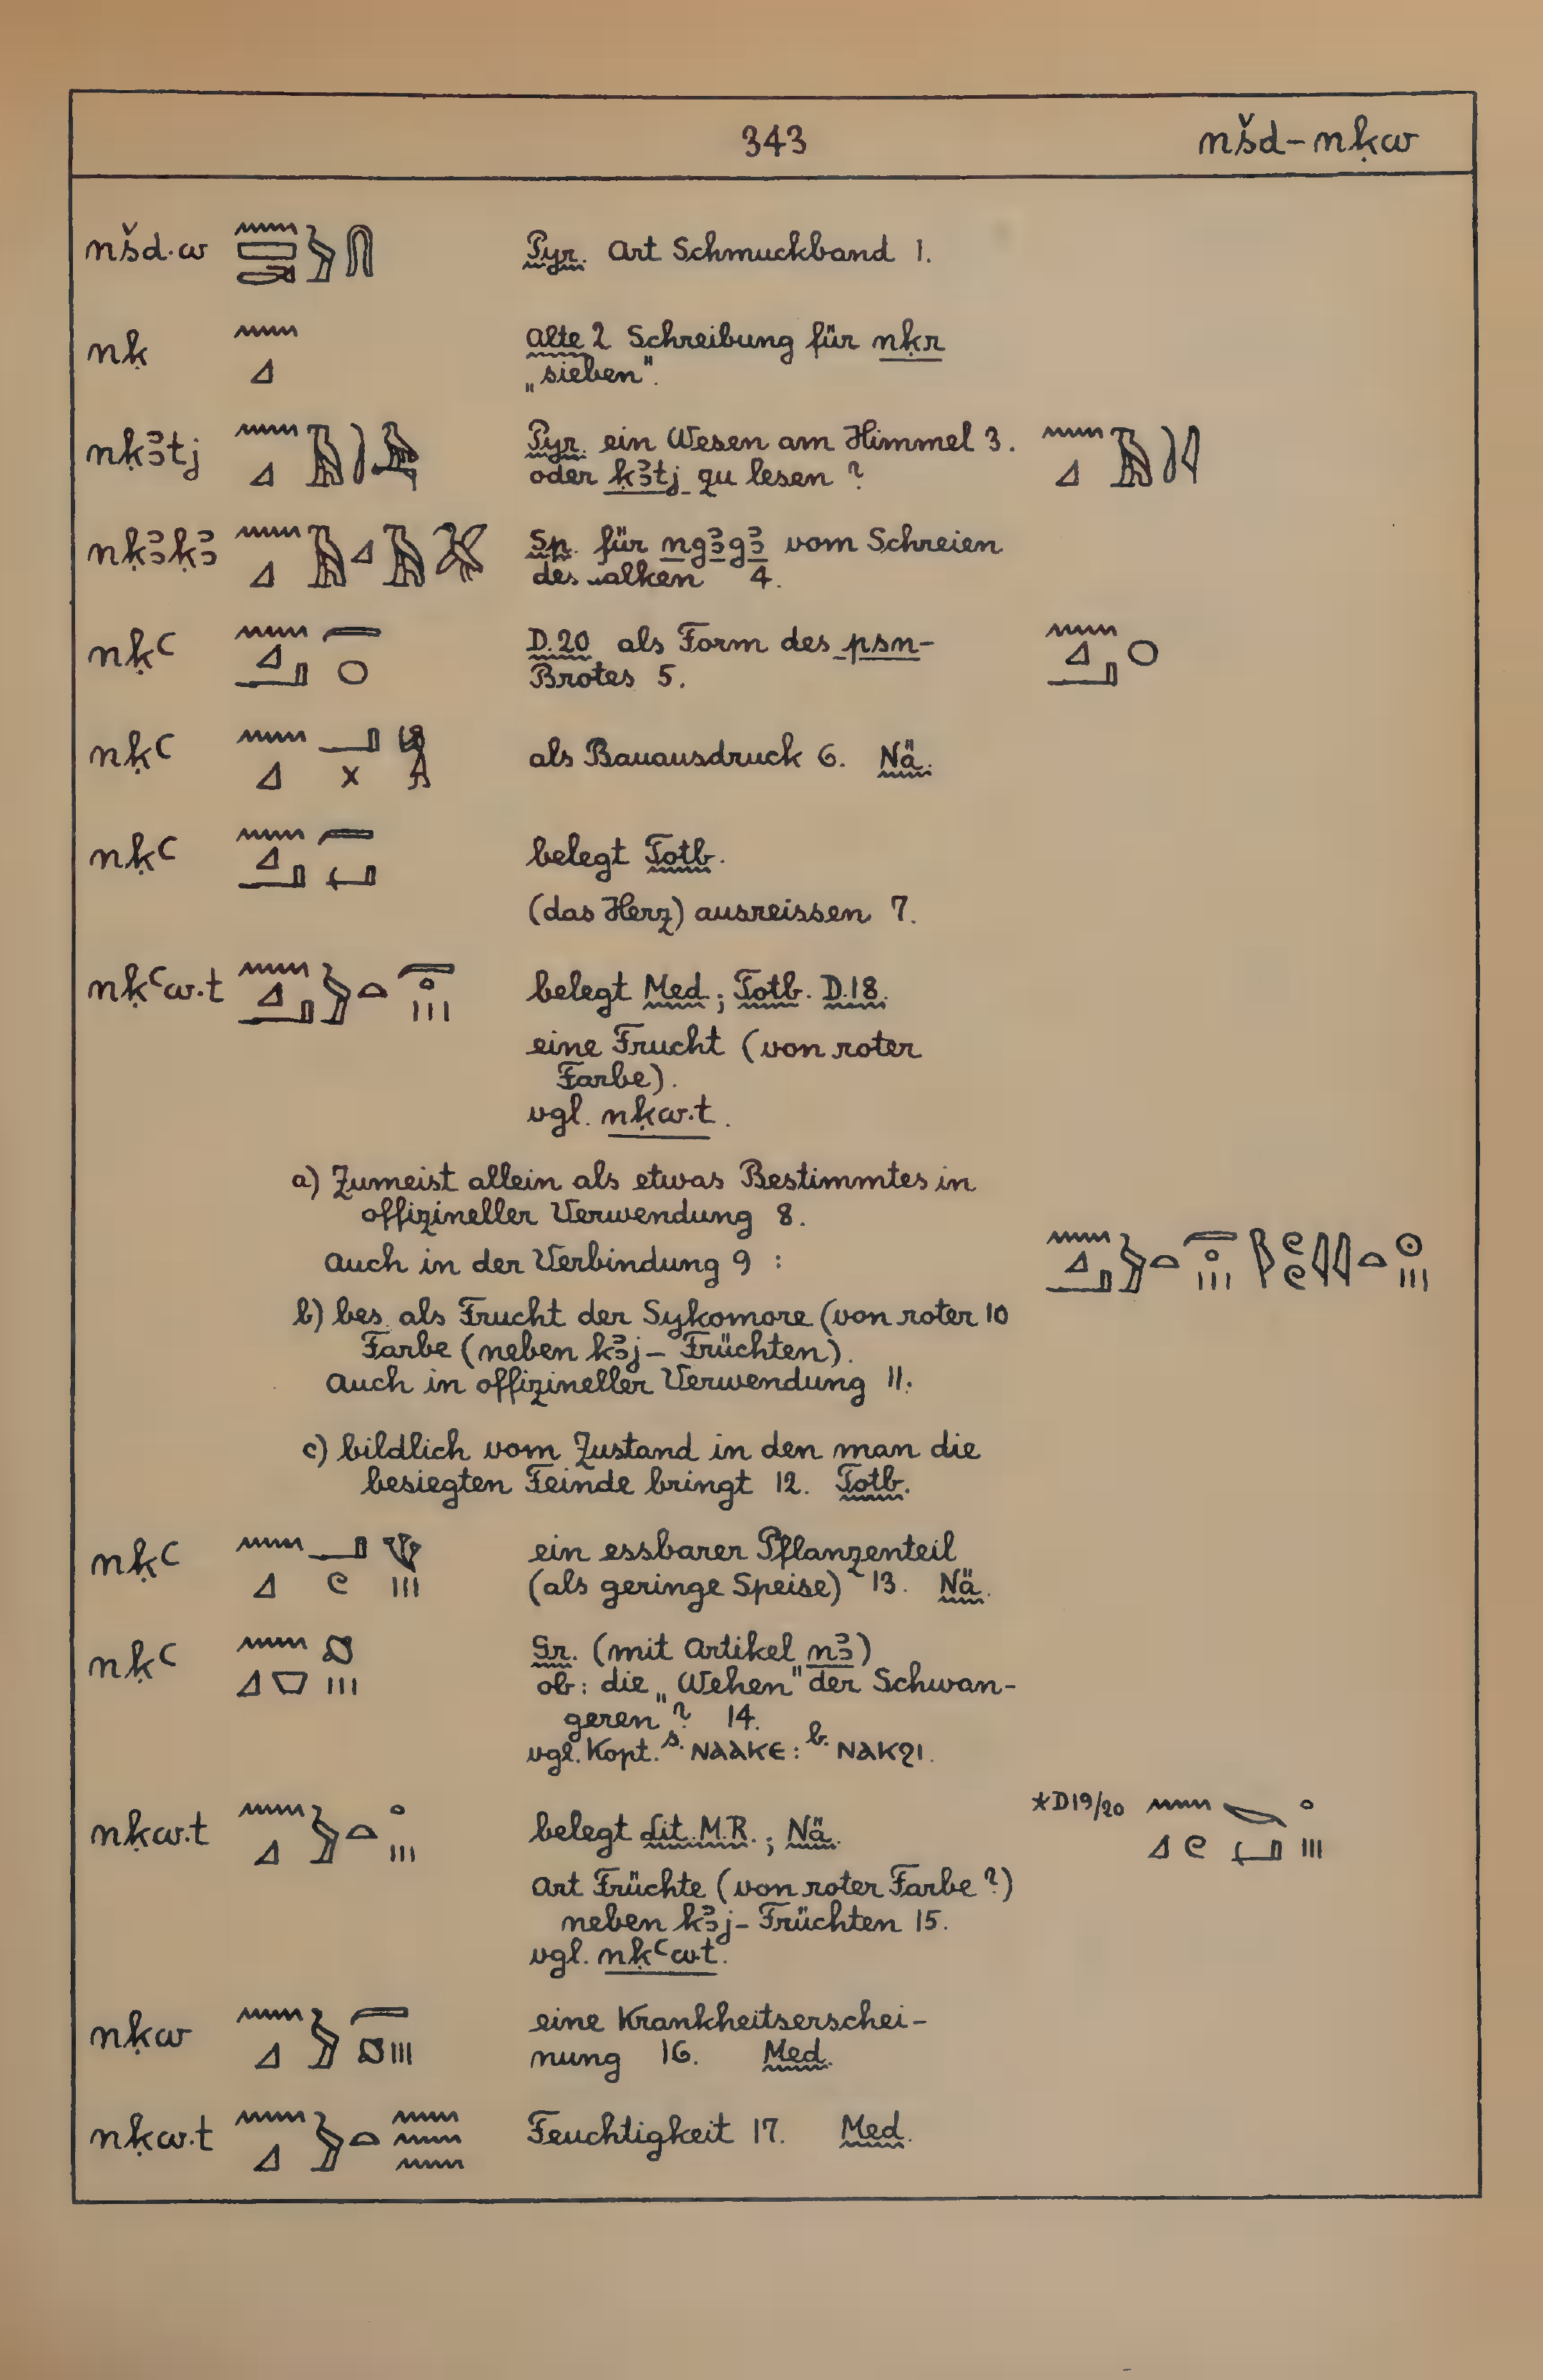 343 nšd-nḳw
nšd.w Pyr. Art Schmuckband 1.
nḳ Alte 2 Schreibung für nḳr
„sieben".
nḳꜣtj Pyr. ein Wesen am Himmel 3.
oder ḳꜣtj zu lesen?
nḳꜣḳꜣ Sp. für ngꜣgꜣ vom Schreien
des alken 4.
nḳꜥ D.20 als Form des psn-
Brotes 5.
nḳꜥ als Bauausdruck 6. Nä.
nḳꜥ belegt Totb.
(das Herz) ausreissen 7.
nḳꜥw.t belegt Med.; Totb. D.18.
eine Frucht (von roter
Farbe).
vgl. nḳw.t.
a) Zumeist allein als etwas Bestimmtes in
offizineller Verwendung 8.
Auch in der Verbindung 9 :
b) bes. als Frucht der Sykomore (von roter 10
Farbe (neben kꜣj- Früchten).
Auch in offizineller Verwendung 11.
c) bildlich vom Zustand in den man die
besiegten Feinde bringt 12. Totb.
nḳꜥ ein essbarer Pflanzenteil
(als geringe Speise) 13. Nä.
nḳꜥ Gr. (mit Artikel nꜣ)
ob: die „Wehen" der Schwan-
geren"? 14.
vgl. Kopt. s. ⲛⲁⲁⲕⲉ : b. ⲛⲁⲕϩⲓ.
nḳw.t belegt Lit. M.R.; Nä. *D19/20
Art Früchte (von roter Farbe?)
neben kꜣj- Früchten 15.
vgl. nḳꜥw.t.
nḳw eine Krankheitserschei-
nung 16. Med.
nḳw.t Feuchtigkeit 17. Med.